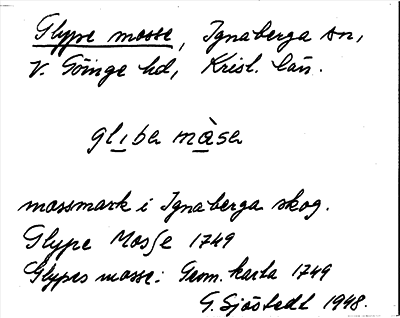 Glype mosse, Ignaberga sn,
V. Göinge hd, Krist. län.
glıbeʀ màseʀ
mossmark i Ignaberga skog.
Glype Mosſe 1749
Glypes mosse: Geom. karta 1749
G. Sjöstedt 1948.